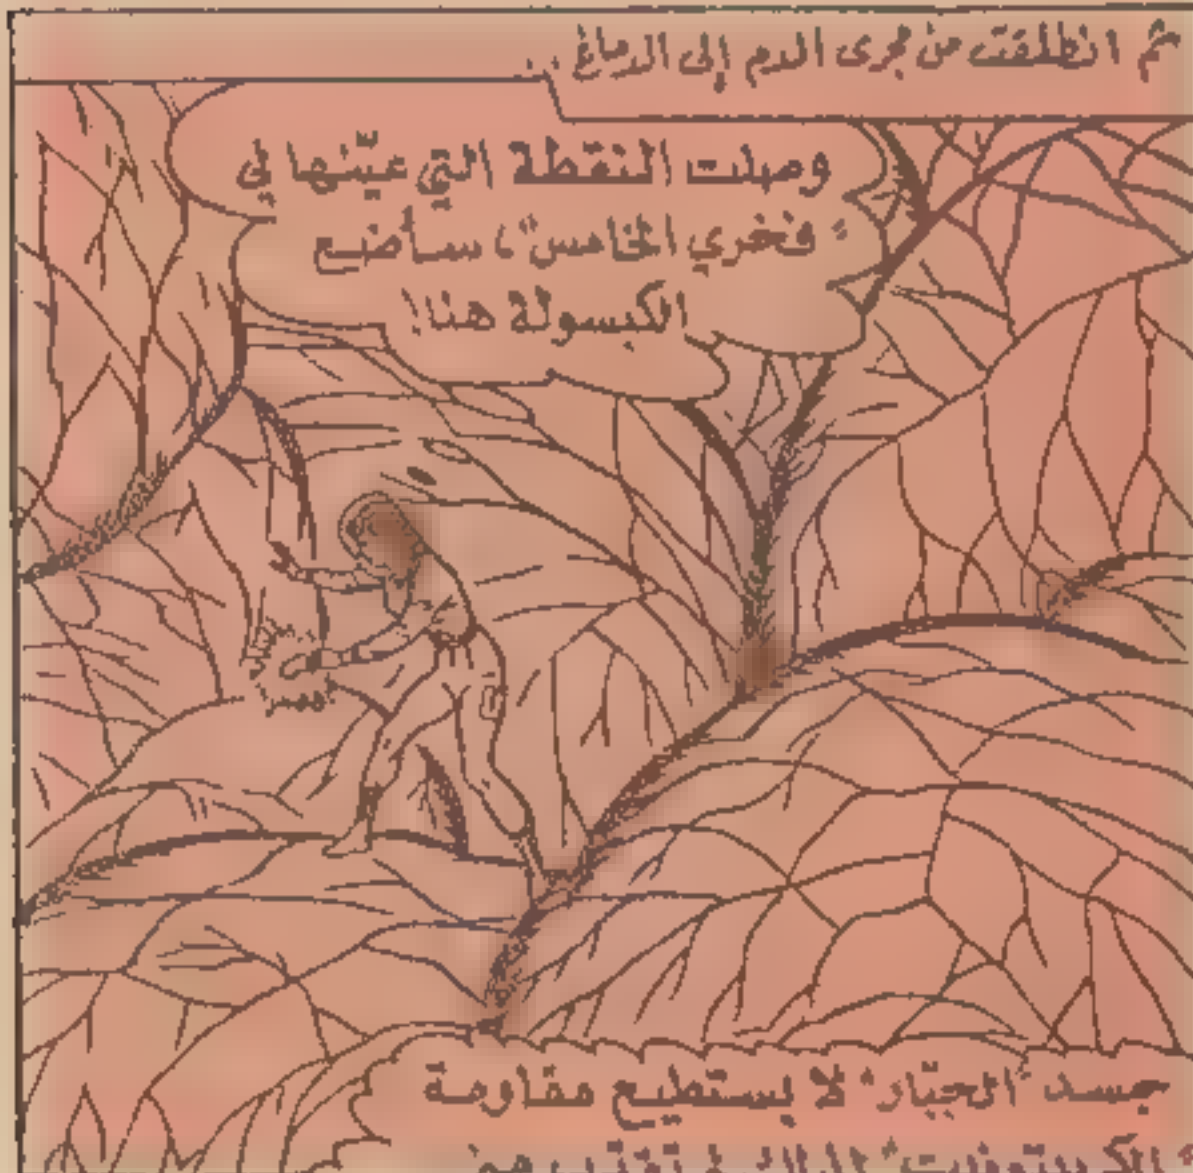 ثم انطلقت من مجرى الدم إلى الدماغ ..
وصلت النقطة التي عيّنها لي
"فخري الخامس"، سأضع
الكبسولة هنا!
جسد "الجبّار" لا يستطيع مقاومة